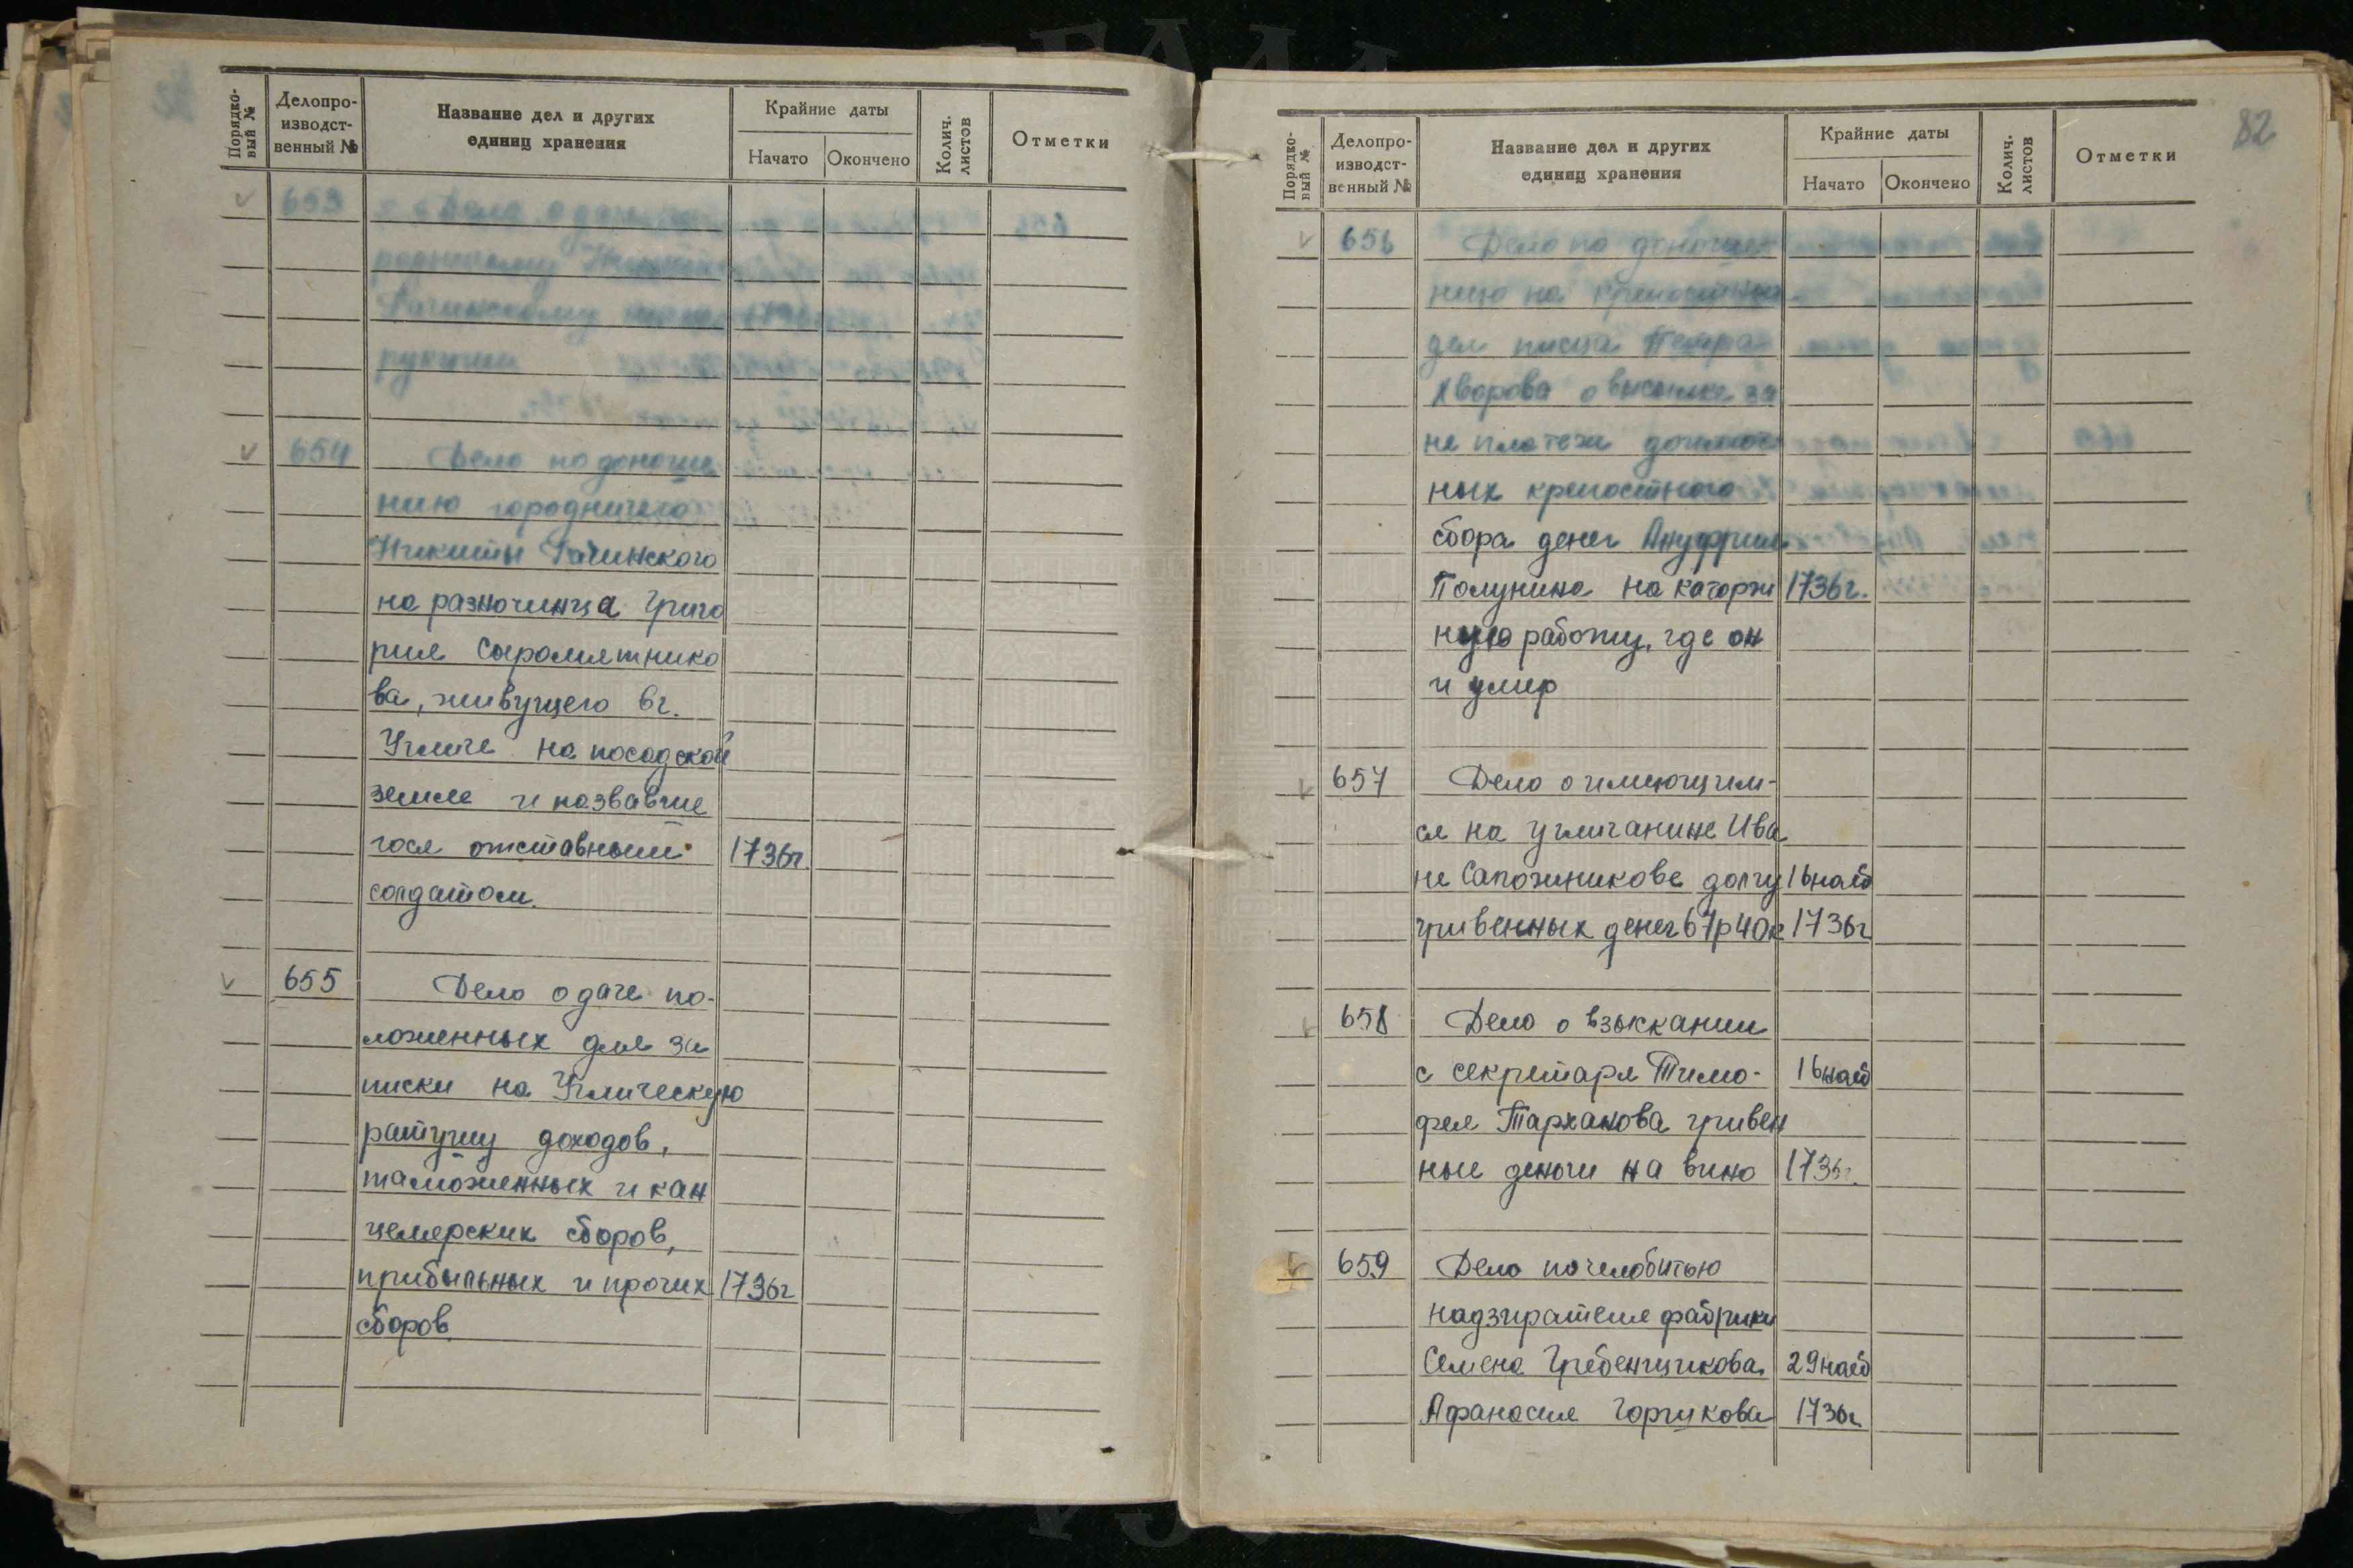 Порядко-
вый №
Делопро-
изводст-
венный №
Название дел и других
единиц хранения
Крайние даты
Начато
Окончено
Колич.
листов
Отметки
653
Дело о
родничему
рукции
654 Дело по доноше
нию городничего
Никиты Рачинского
на разночинца Григо
рия Сыромятнико
ва, живущего в г.
Угличе на посадской
земле и назвавше
гося отставным 1736г.
солдатом.
655 Дело о даче по-
ложенных для за
писки на Углическую
ратушу доходов,
таможенных и кан
целярских сборов,
прибыльных и прочих 1736г
сборов
82
Порядко-
вый №
Делопро-
изводст-
венный №
Название дел и других
единиц хранения
Крайние даты
Начато
Окончено
Колич.
листов
Отметки
656 Дело по доноше
нию на крепостных
дел писца Петра
Хворова о высылке за
не платежи доимоч
ных крепостного
сбора денег Ануфрия
Полунина на каторж 1736г.
ную работу, где он
и умер
657 Дело о имеющим-
ся на угличанине Ива
не Сапожникове долгу 16 нояб
гривенных денег 67р 40к 1736г
658 Дело о взыскании
с секретаря Тимо- 16 нояб
фея Тарханова гривен
ные деньги на вино 1736г.
659 Дело по челобитью
надзирателя фабрики
Семена Гребенщикова 29 нояб
Афанасия Горшкова 1736г.